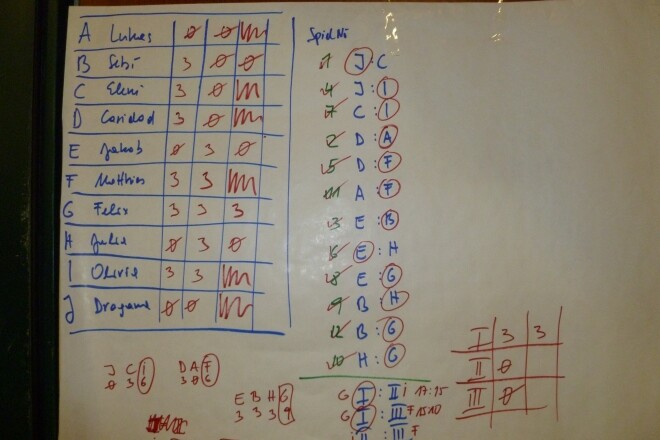 A Lukas 0 0
B Sebi 3 0 0
C Eleni 3 0
D Caridad 3 0
E Jakob 0 3 0
F Matthias 3 3
G Felix 3 3 3
H Julia 0 3 0
I Olivia 3 3
J Dragana 0 0
J C I
0 3 6
D A F
3 0 6
E B H G
3 3 3 9
Spiel Nr
1 J : C
4 J : I
7 C : I
2 D : A
5 D : F
11 A : F
3 E : B
6 E : H
8 E : G
9 B : H
12 B : G
10 H : G
G I : II I 17:15
G I : III F 15:10
II : III F
I 3 3
II 0
III 0